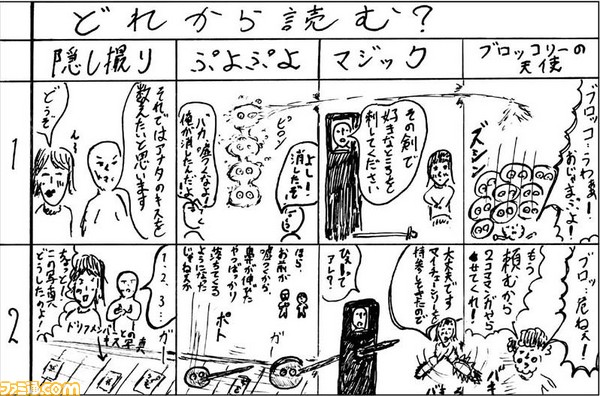 どれから読む?
隠し撮り
ぷよぷよ
マジック
ブロッコリーの
天使
1
それではアナタのキスを
数えたいと思います
ん〜
どうぞ
よし!
消したぞ
バカ、嘘つくなよ!
俺が消したんだよ!
その剣で
好きなところを
刺してください
ブロッコ…うわぁ!
おじゃまぷよ!
ズシン
2
1、2、3…
ガー
ちょっと!
この写真
どうしたのよ!
ドリフメンバーとの
キス写真
ほら、
お前が
嘘つくから、
鼻が伸びて
やっぱり
落ちてくる
ようになった
じゃねえか
ポト
ガ
大丈夫です
マイチェーンソーを
持参してきたので
って
アレ?
ブロッ…危ねえ!
もう
頼むから
2コママンガやら
せてくれ!
バキ
ファミ通.com